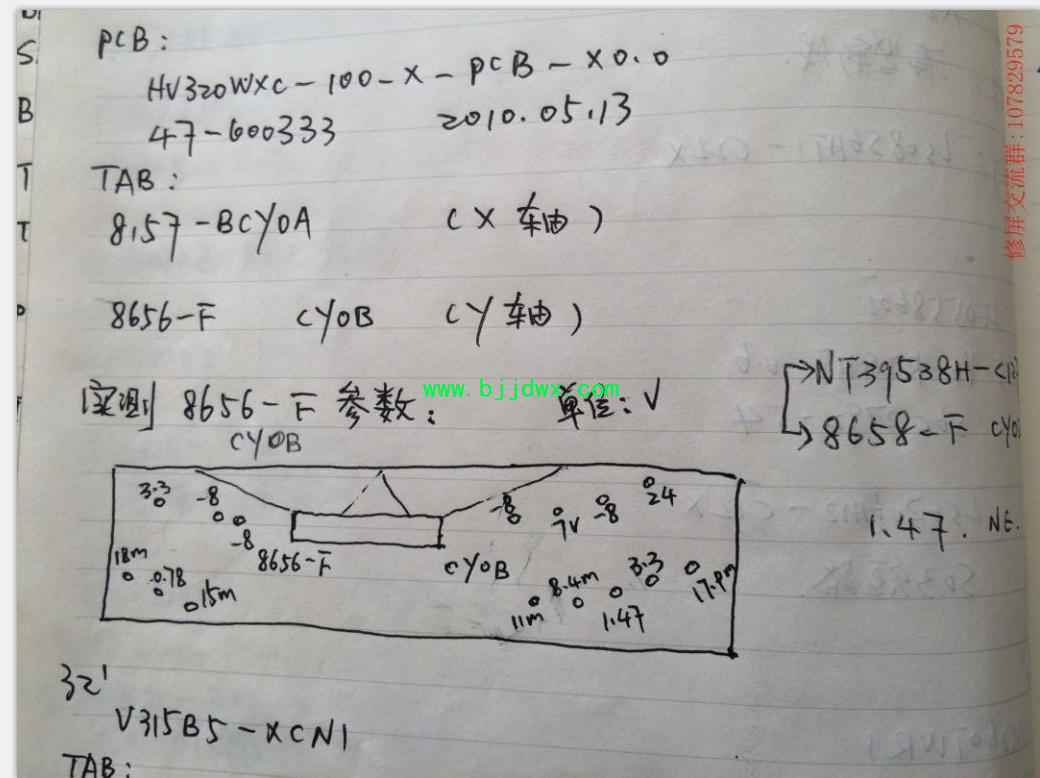 PCB:
HV320WXC-100-X-PCB-X0.0
47-600333 2010.05.13
TAB:
8157-BCY0A (X轴)
8656-F CY0B (Y轴)
实测8656-F参数: 单位:V
CY0B
www.bjjdwx.com
→NT39538H-C12
→8658-F CY0
3.3 -8 -8 -8 7V -8 24
8656-F CY0B
18m 0.78 15m 11m 8.4m 1.47 3.3 17.9m
1.47. NE.
32'
V315B5-XCN1
TAB:
修屏交流群:107829579
S
B
T
T